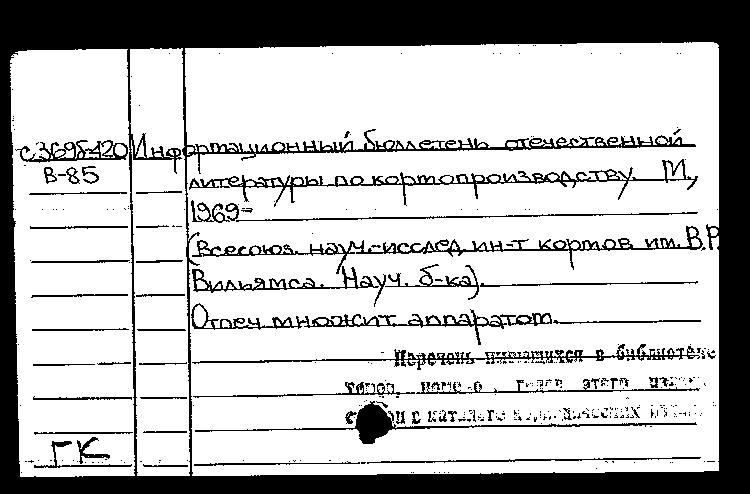 С3695-420 Информационный бюллетень отечественной
В-85 литературы по кормопроизводству. М.,
1969-
(Всесоюз. науч.-исслед. ин-т кормов им. В.Р.
Вильямса. Науч. б-ка).
Отпеч. множит. аппаратом.
Перечень имеющихся в библиотеке
томов, номеров, годов этого издания
с в каталоге периодических
ГК